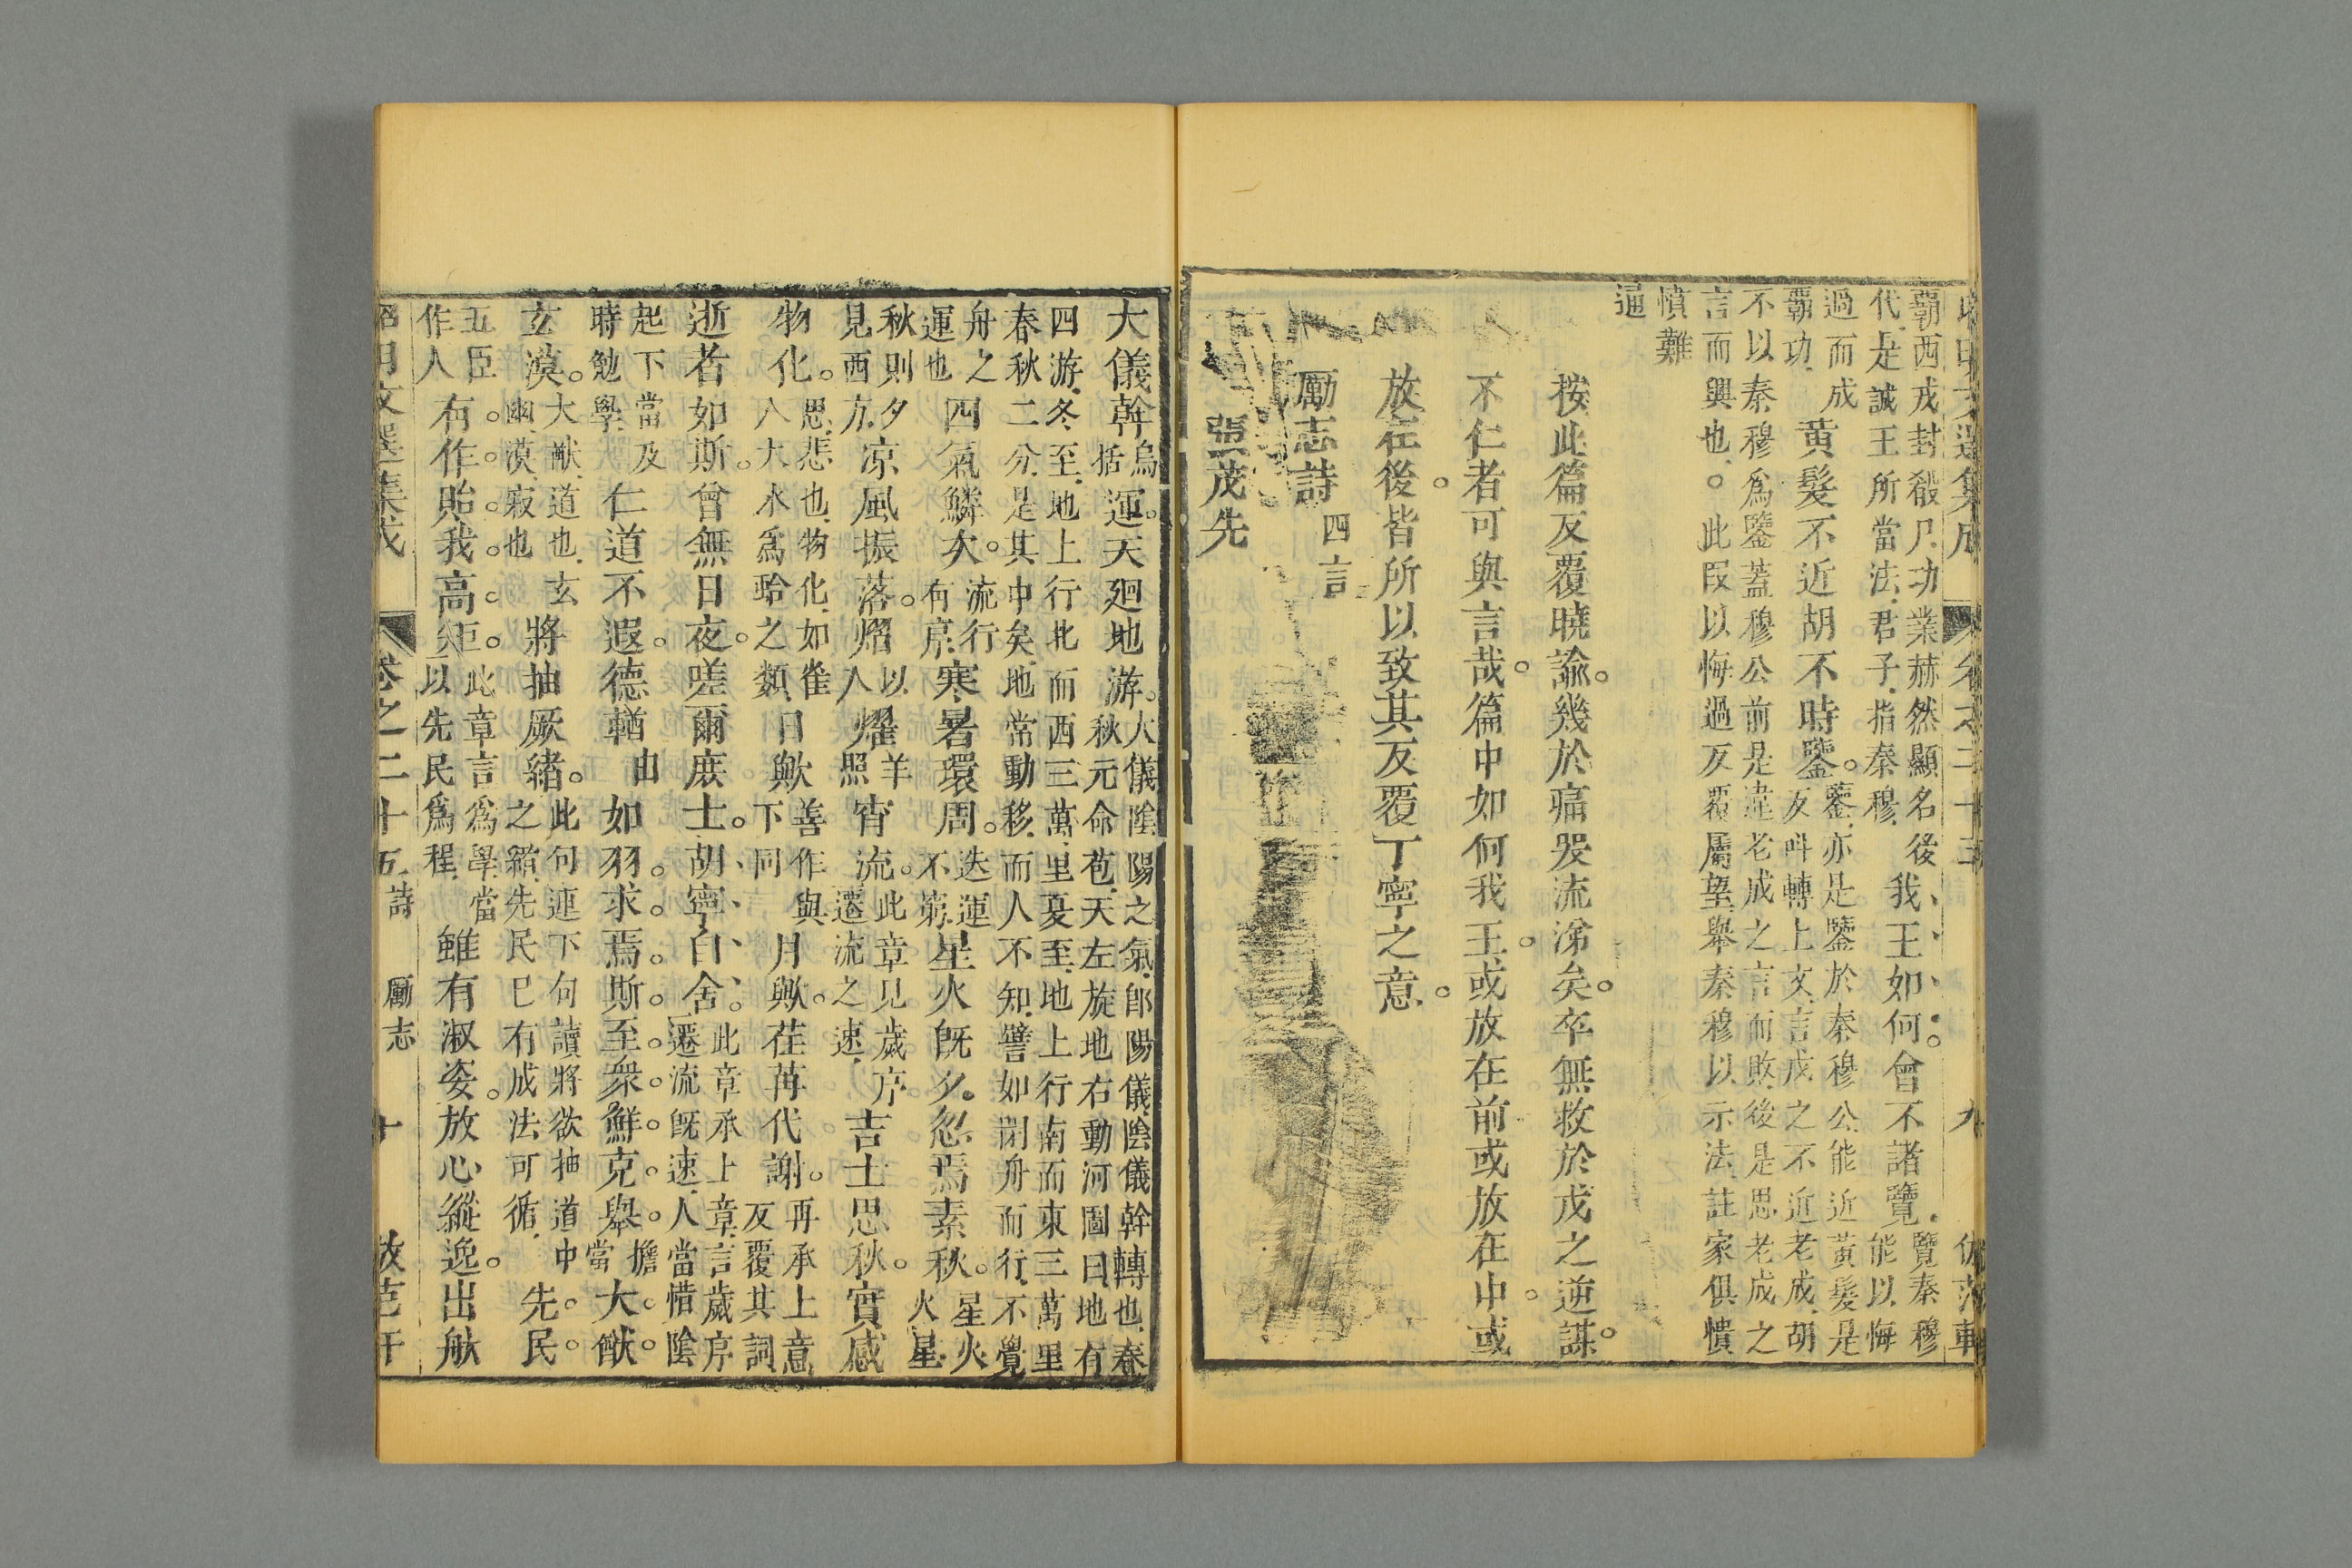 霸西戎封殽尸功業赫然顯名後
代是誠王所當法君子指秦穆
我王如何曾不諸覽
覽秦穆
能以悔
過而成
霸功
黃髮不近胡不時鑒
鑒亦是鑒於秦穆公能近黃髮是
反呌轉上文言戊之不近老成胡
不以秦穆爲鑒蓋穆公前是違老成之言而敗後是思老成之
言而興也此叚以悔過反覆屬望舉秦穆以示法註家俱憒
憒難
通
按此篇反覆曉諭幾於痛哭流涕矣卒無救於戊之逆謀
不仁者可與言哉篇中如何我王或放在前或放在中或
放在後皆所以致其反覆丁寧之意
勵志詩四言
張茂先
大儀斡
烏
括
運天廻地游
大儀陰陽之氣卽陽儀陰儀斡轉也春
秋元命苞天左旋地右動河圖曰地有
四游冬至地上行北而西三萬里夏至地上行南而東三萬里
春秋二分是其中矣地常動移而人不知譬如閉舟而行不覺
舟之
運也
四氣鱗次
流行
有序
寒暑環周
迭運
不窮
星火旣夕忽焉素秋
星火
火星
秋則夕
見西方
凉風振落熠
以
入
燿
羊
照
宵流
此章見歲序
遷流之速
吉士思秋實感
物化
思悲也物化如雀
入大水爲蛤之類
日歟
善作與
下同
月歟荏苒代謝
再承上意
反覆其詞
逝者如斯曾無日夜嗟爾庶士胡寧自舍
此章承上章言歲序
遷流旣速人當惜陰
起下當及
時勉學
仁道不遐德輶
由
如羽求焉斯至衆鮮克舉
擔
當
大猷
玄漠
大猷道也玄
幽漠寂也
將抽厥緒
此句連下句讀將欲抽道中
之緒先民已有成法可循
先民
五臣
作人
有作貽我高矩
此章言爲學當
以先民爲程
雖有淑姿放心縱逸出般
卷之二十五 詩 勵志 十